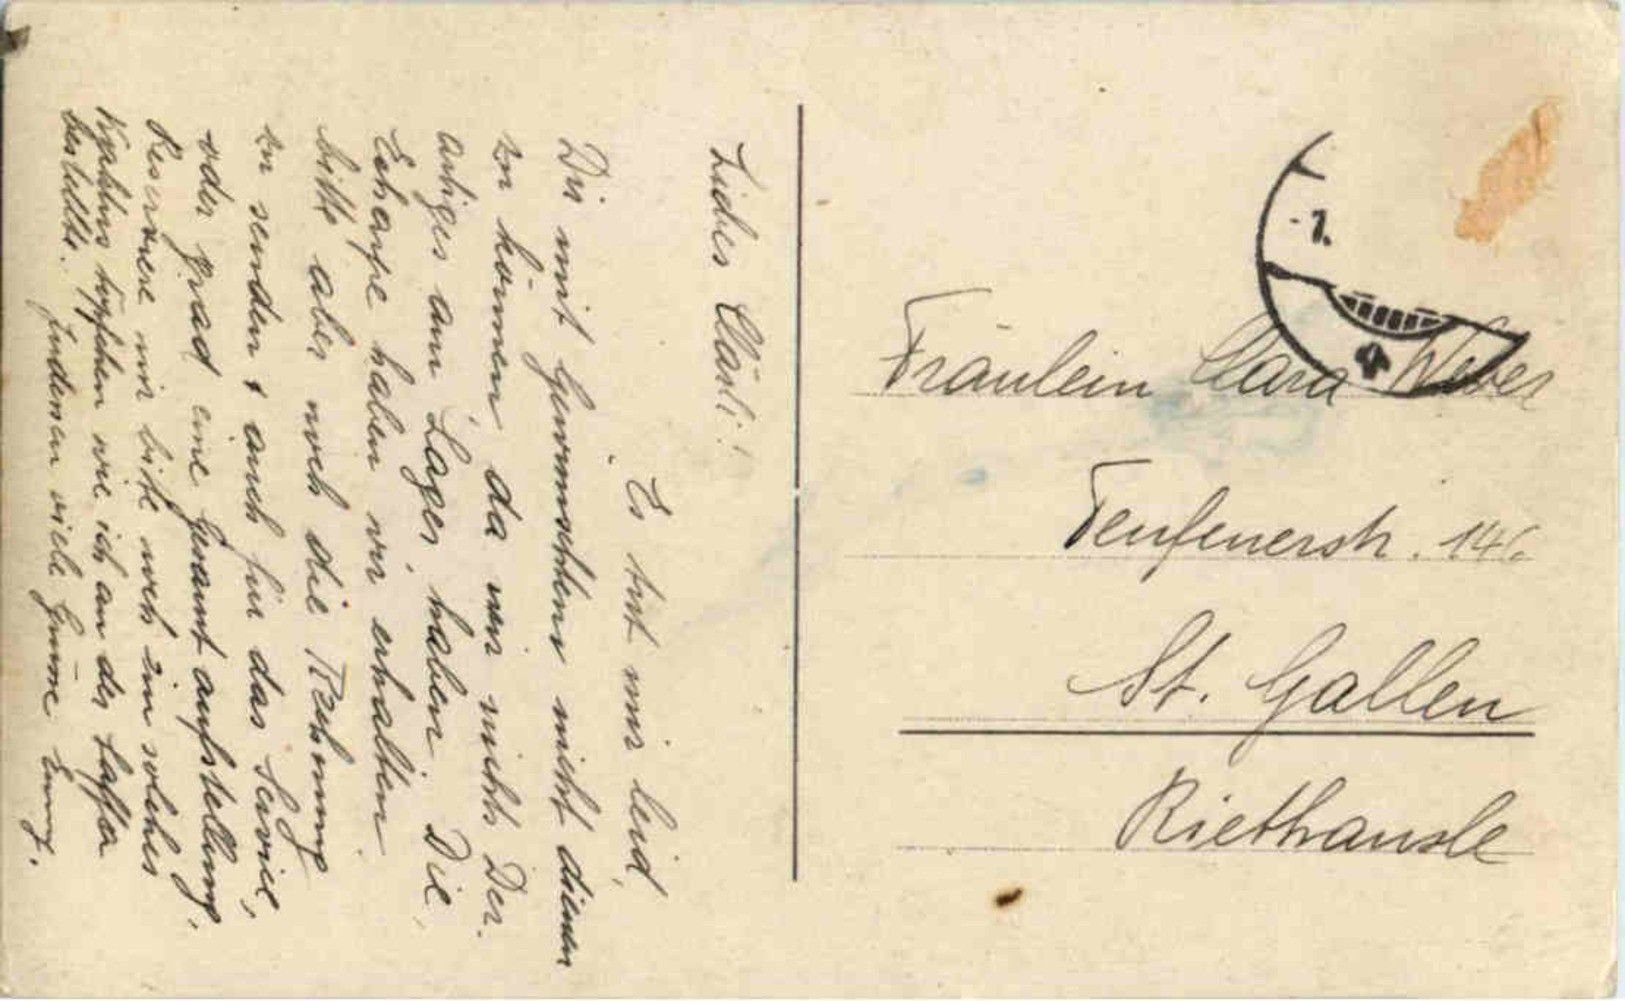 Liebes Clärli!
Es tut mir leid,
Dir mit Gewünschtem nicht dienen
zu können da wir nichts Der-
artiges am Lager haben. Die
Echarpe haben wir erhalten
bitte aber noch die Rechnung
zu senden & auch für das Service,
oder grad eine Gesamtaufstellung.
Reserviere mir bitte noch ein solches
wie ich an der
bestellte. Indessen viele Grüsse Emmy.
-7.
Fräulein Clara Weber
Teufenerstr. 146
St. Gallen
Riethäusle